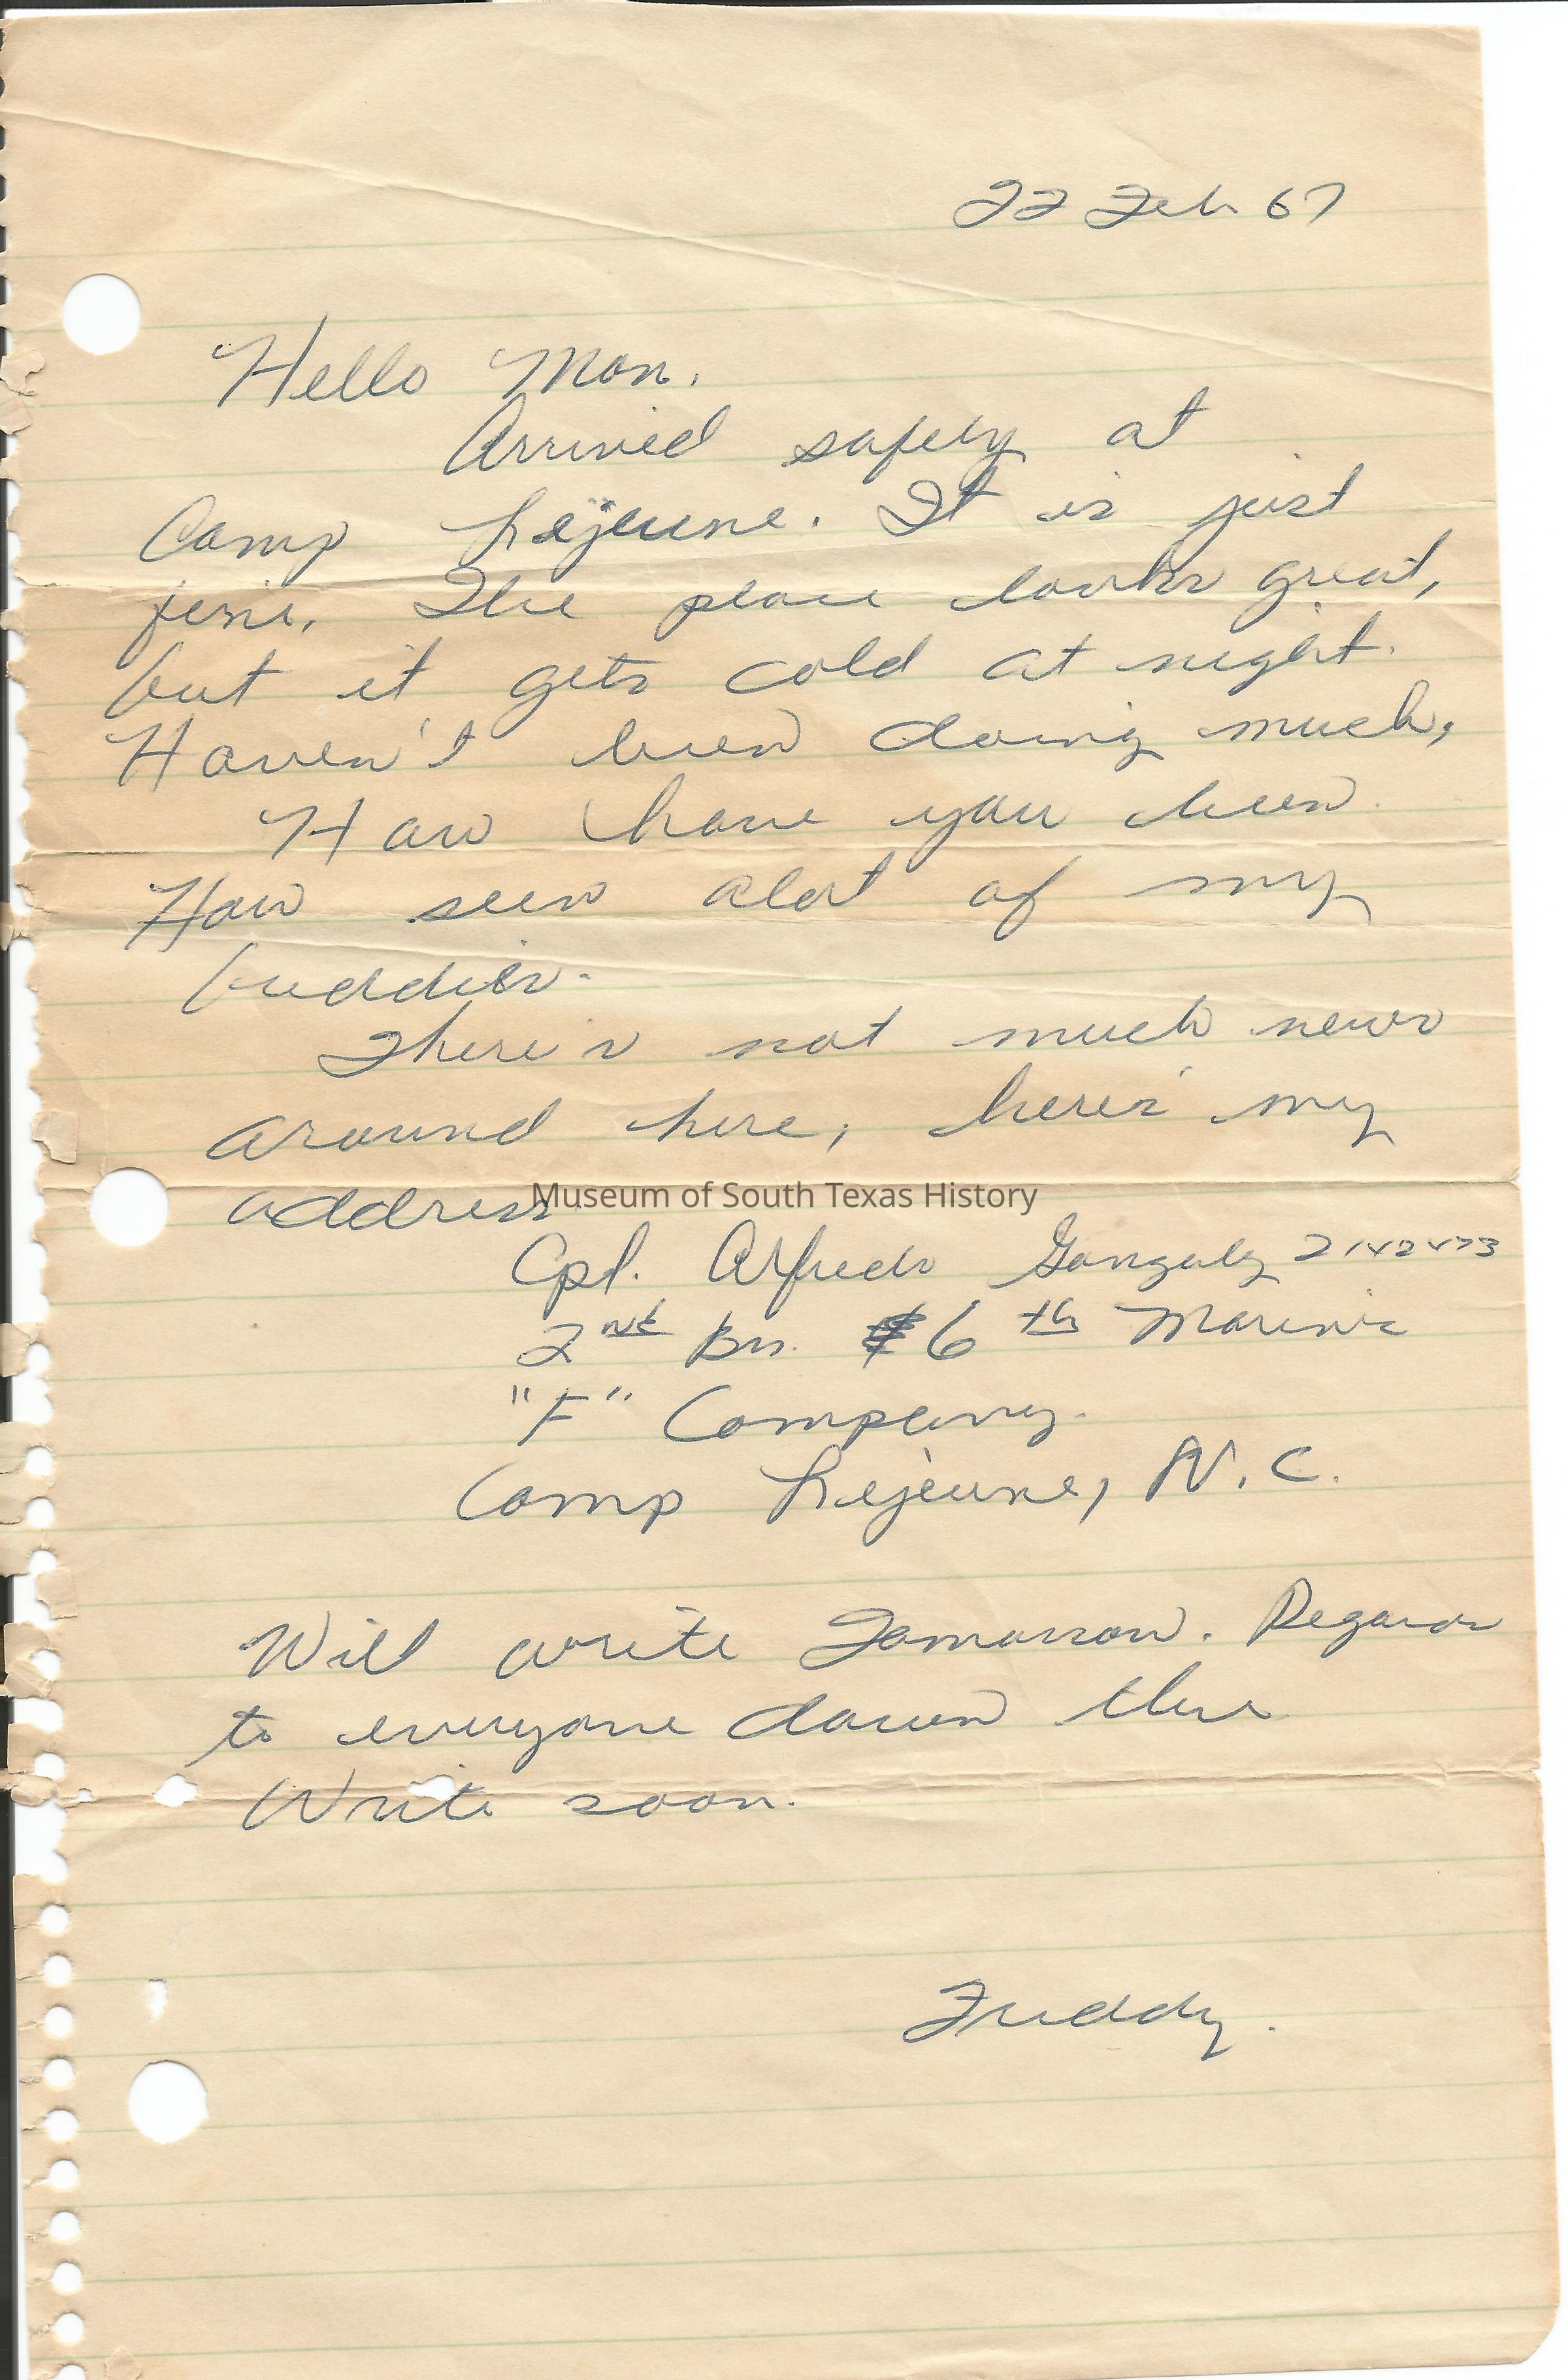 22 Feb 67
Hello Mon.
Arrived safely at
Camp Lejeune. It is just
fine. The place looks great,
but it gets cold at night.
Haven't been doing much,
How have you been.
Have seen alot of my
buddies.
There's not much news
around here, here's my
address
Museum of South Texas History
Cpl. Alfredo Gonzalez 2142473
2nd Bn. 6th Marine
"F" Company.
Camp Lejeune, N.C.
Will write Tomorrow. Regards
to everyone down there
Write soon.
Freddy.